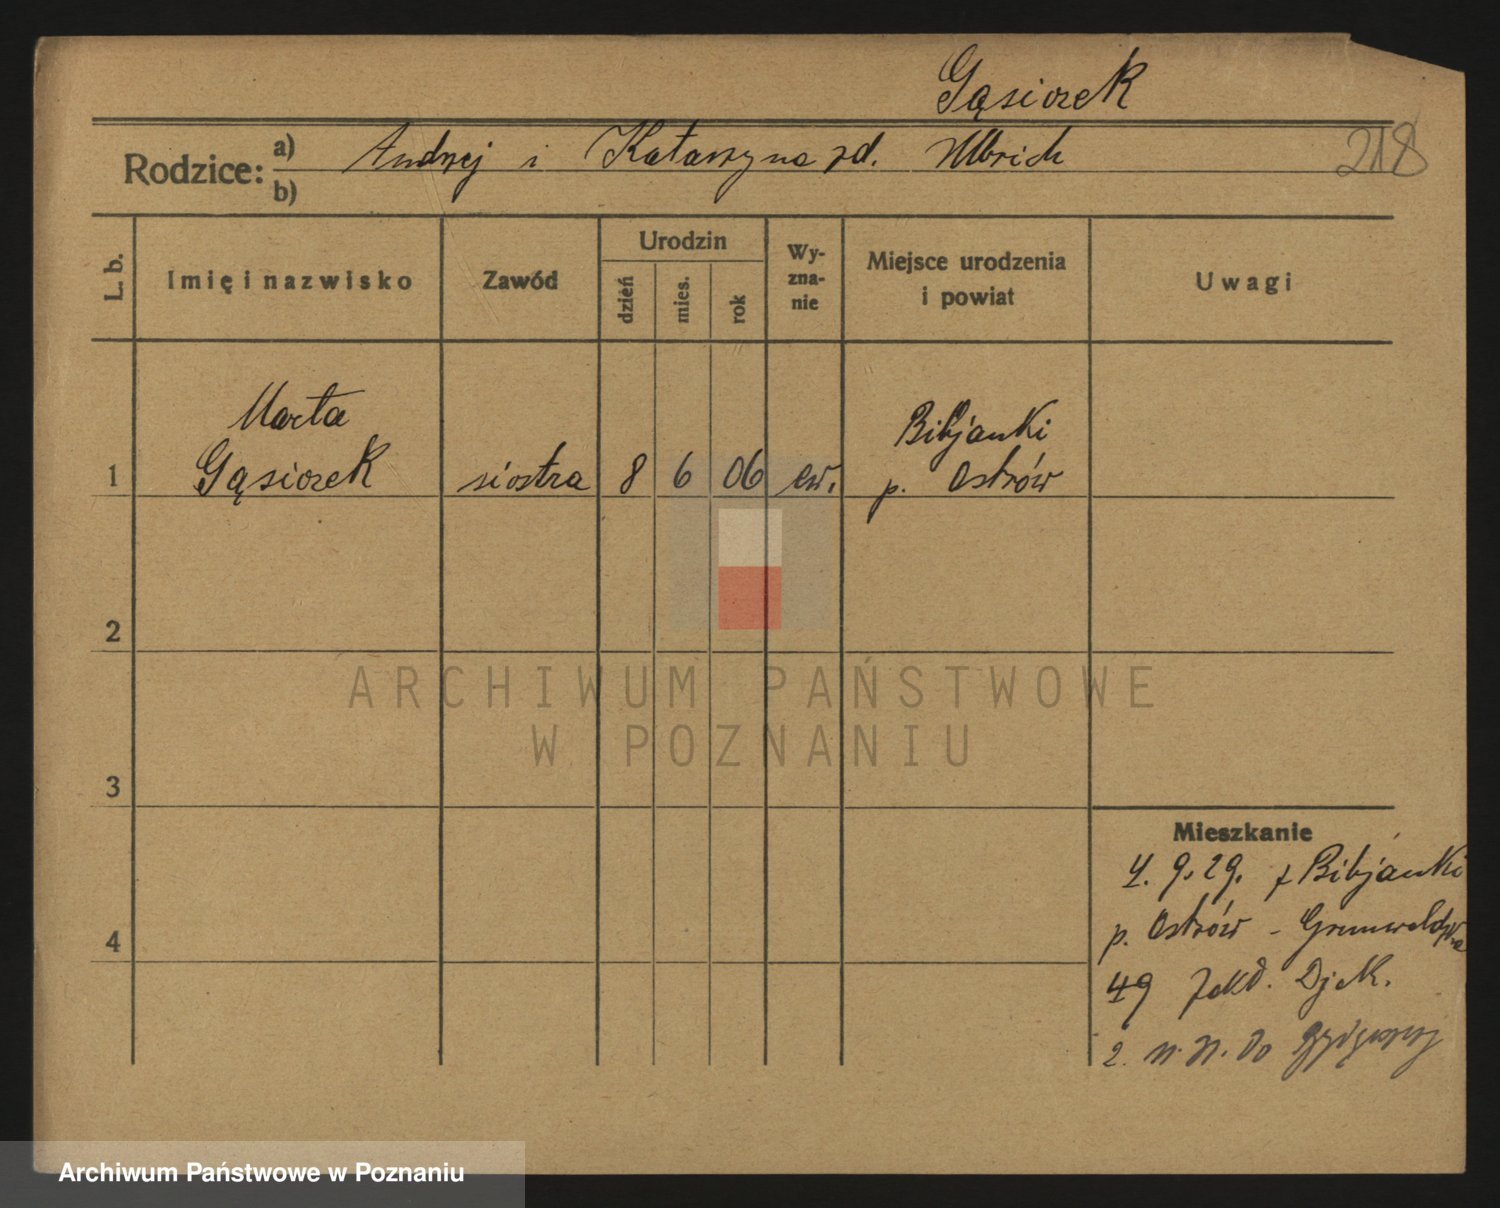 Gąsiorek
Rodzice: a) Andrzej i Katarzyna zd. Ulbrich
b)
218
L. b. Imię i nazwisko Zawód Urodzin dzień mies. rok Wy-zna-nie Miejsce urodzenia i powiat Uwagi
Marta Bibjanki
1 Gąsiorek siostra 8 6 06 ew. p. Ostrów
2
3
4
Mieszkanie
4. 9. 29. z Bibjanki
p. Ostrów - Grunwaldzka
49 Zakł. Djak.
2. do Bydgoszczy
ARCHIWUM PAŃSTWOWE
W POZNANIU
Archiwum Państwowe w Poznaniu